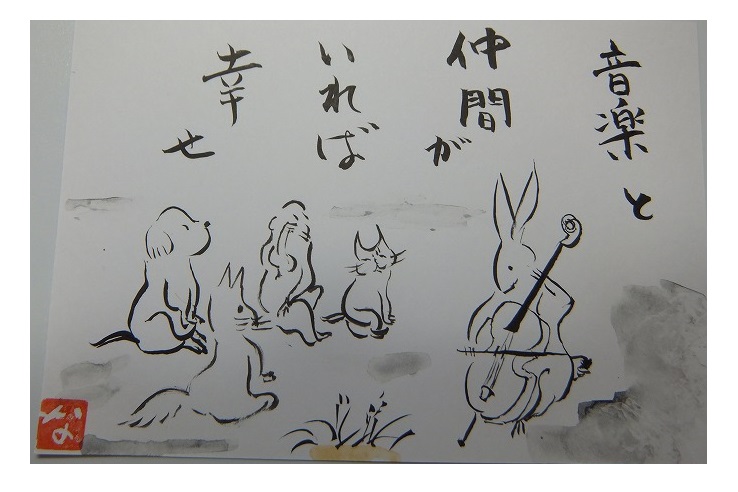 音楽と
仲間が
いれば
幸せ
な